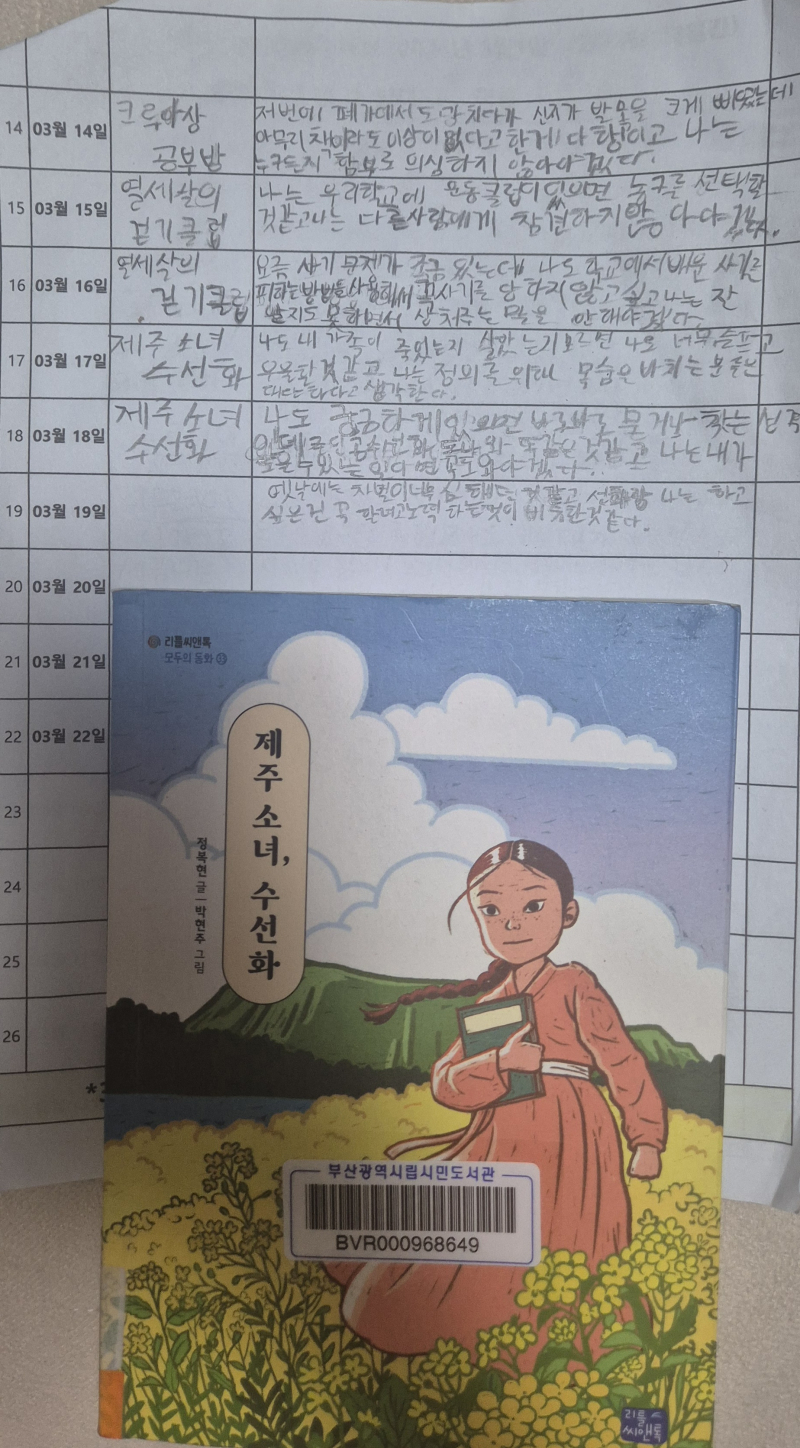 14 03월 14일 크루아상 공부방
저번에 폐가에서 도망치다가 신지가 발목을 크게 삐었는데
아무리 착이라도 이상이 없다고 한게 다행이고 나는
누구든지 함부로 의심하지 않아야겠다.
15 03월 15일 열세살의 걷기클럽
나는 우리학교에 운동클럽이 있으면 농구를 선택할
것같고 나는 다른사람에게 참견하지 않
16 03월 16일 열세살의 걷기클럽
요즘 사기 문제가 조금 있는데 나도 학교에서 배운 사기를
피하는 방법을 사용해서 사기를 당하지 않고 싶고 나는 잔
알지도 못하면서 상처주는 말을 안해야겠다.
17 03월 17일 제주 소녀 수선화
나도 내 가족이 죽었는지 살았는지 모르면 나도 너무 슬프고
우울할 것 같고 나는 정의를 위해 목숨을 바치는 분들은
대단하다고 생각한다.
18 03월 18일 제주 소녀 수선화
나도 궁금한게 있으면 바로바로 묻거나 찾는 성격
똑같은 것같고 나는 내가
도울수있는 일이면 꼭 도와야겠다.
19 03월 19일
옛날에는 차별이 너무 심했던 것 같고 나는 하고
싶은건 꼭 할려고 노력 하는것이 비슷한것 같다.
20 03월 20일
21 03월 21일
22 03월 22일
23
24
25
26
*3
리틀씨앤톡
모두의 동화 33
제주 소녀, 수선화
정복현 글 | 박현주 그림
부산광역시립시민도서관
BVR000968649
리틀
씨앤톡